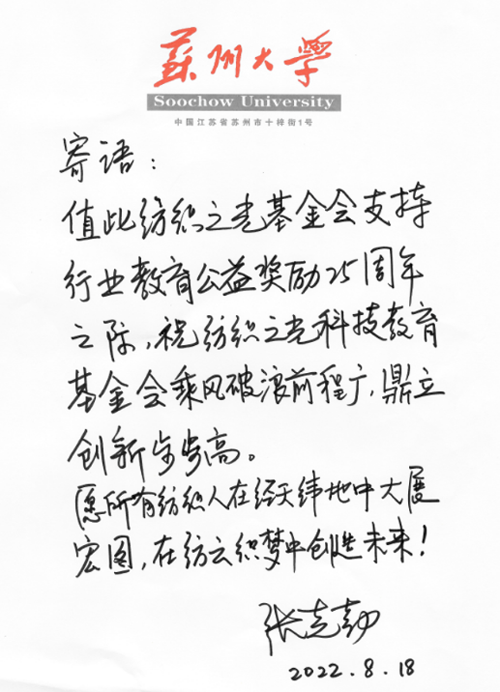 蘇州大學
Soochow University
中国江苏省苏州市十梓街1号
寄语：
值此纺织之光基金会支持
行业教育公益奖励25周年
之际，祝纺织之光科技教育
基金会乘风破浪前程广，鼎立
创新步步高。
愿所有纺织人在经天纬地中大展
宏图，在纺云织梦中创造未来！
张克勤
2022.8.18